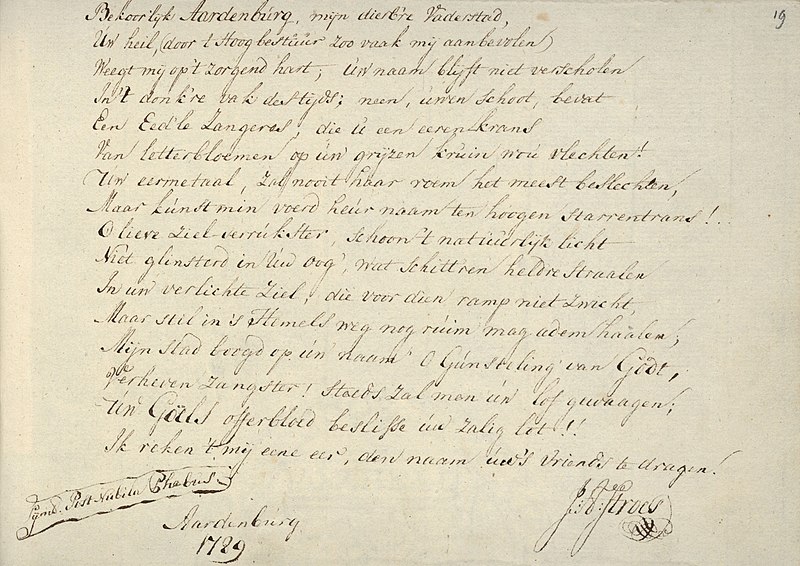 19
Bekoorlyk Aardenburg, mijn dierb're Vaderstad,
Uw heil, (door 't Hoogbestuur zoo vaak mij aanbevolen)
Weegt mij op't zorgend hart; uw naam blijft niet verscholen
In't donk're vak des tijds; neen, uwen schoot, bevat
Een Eed'le Zangeres, die u een eerenkrans
Van letterbloemen op uw grijzen kruin wou vlechten!
Uw eermetaal, zal nooit haar roem het meest beslechten,
Maar kunstmin voerd heur naam ten hoogen starrentrans!
O lieve Ziel verrukster, schoon 't natuurlijk licht
Niet glinsterd in Uw oog, wat schitt'ren heldre straalen
In uw verlichte Ziel, die voor dien ramp niet zwicht,
Maar stil in 's Hemels weg nog ruim mag adem haalen;
Mijn stad boogd op uw naam O Gunsteling van Godt,
Verheven Zangster! steeds zal men uw lof gewaagen;
Uw Goëls offerbloed beslisse uw zalig lot!!
Ik reken 't mij eene eer, den naam uw's Vriends te dragen!
Symb. Post Nubila Phebus
Aardenburg
1789